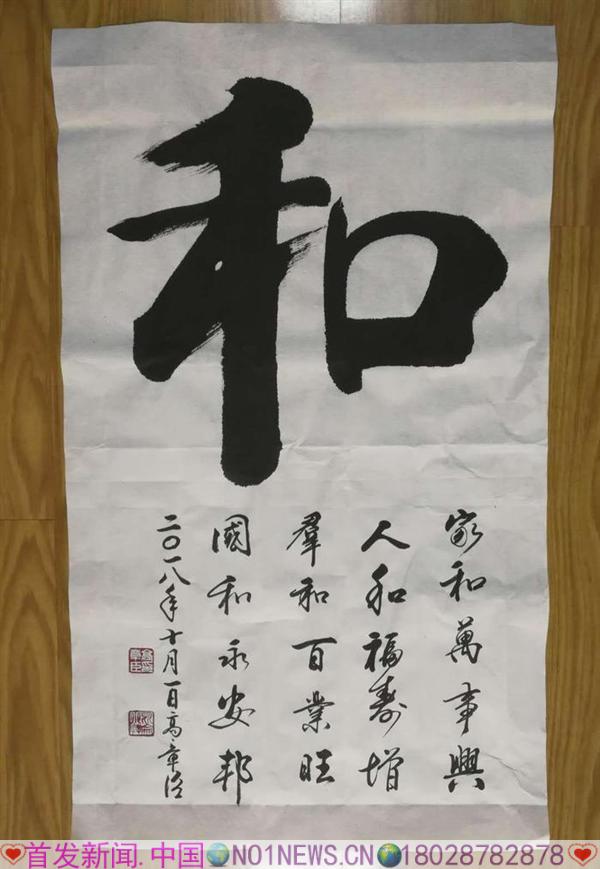 和
家和萬事興
人和福壽增
羣和百業旺
國和永安邦
二〇一八年十月一日高章
首发新闻.中国NO1NEWS.CN18028782878